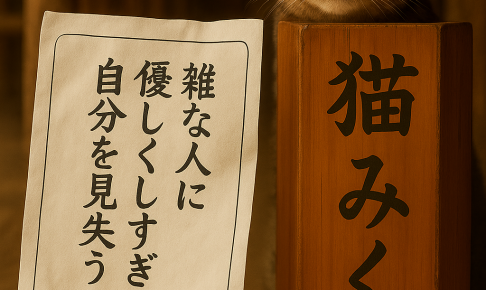 雑な人に
優しくしすぎ
自分を見失う
猫みく